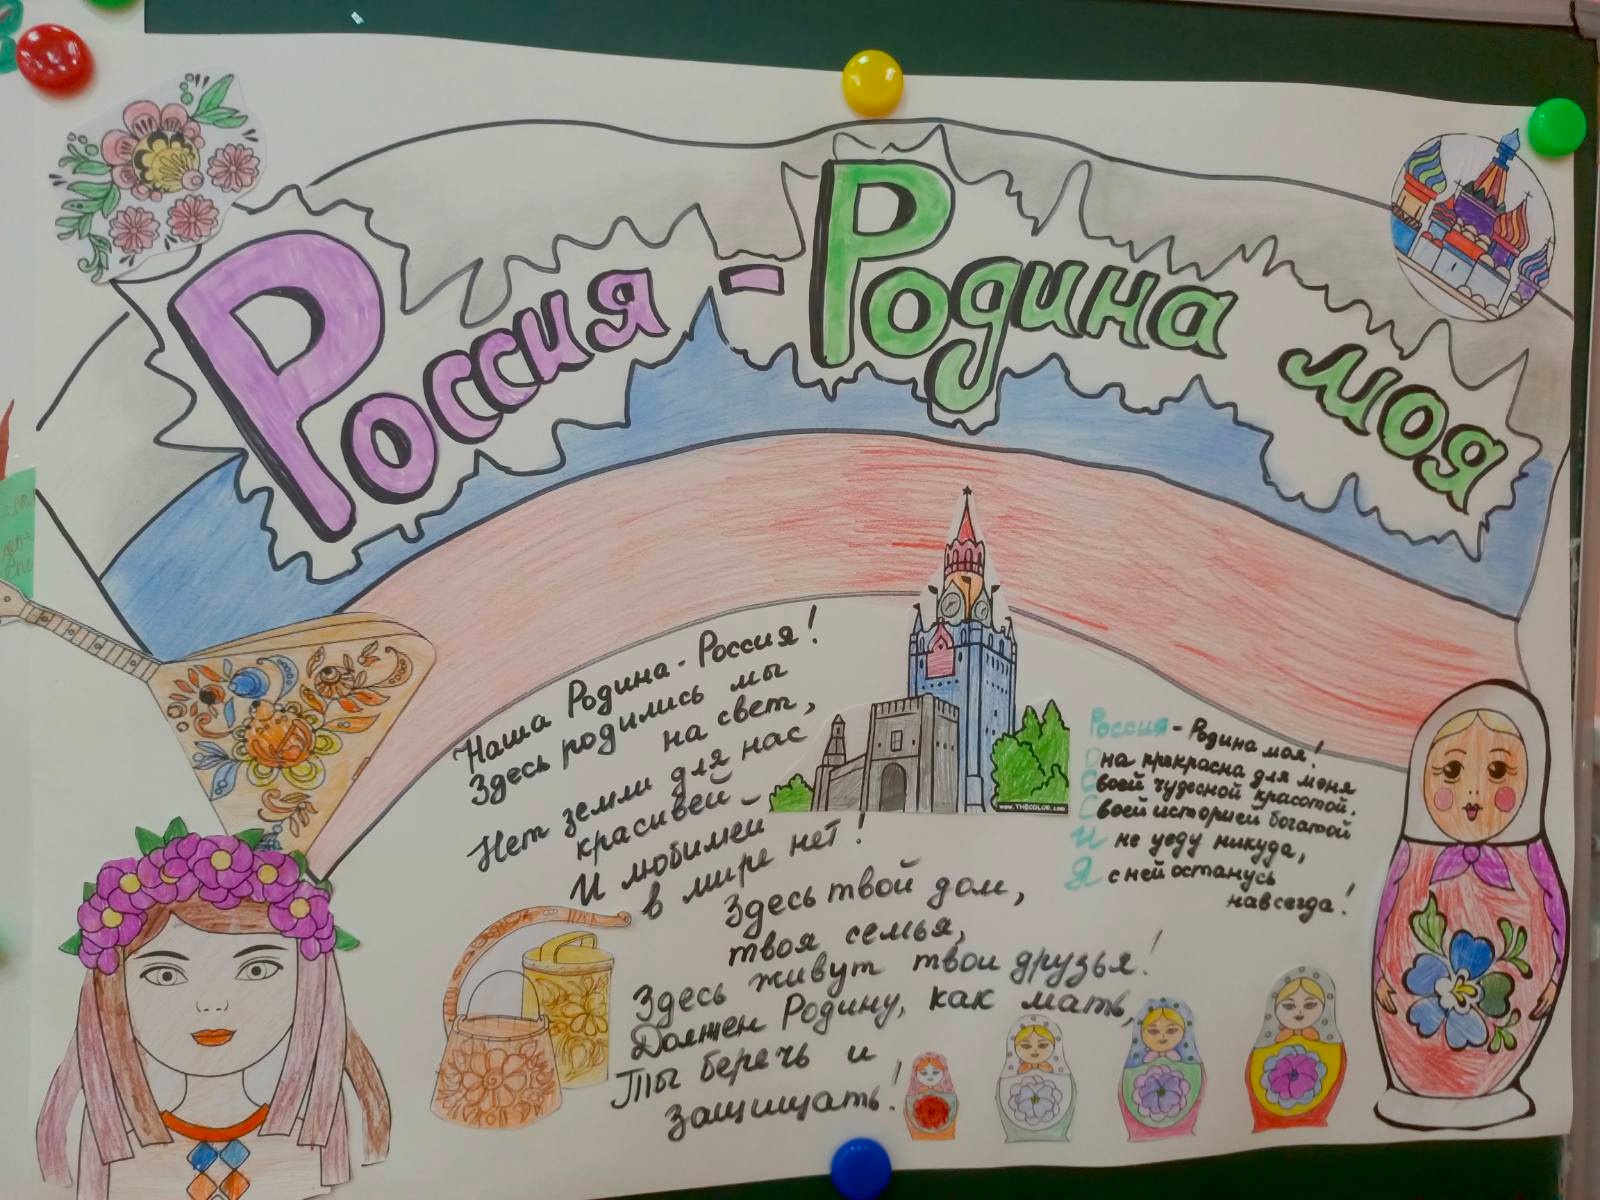 Россия - Родина моя
Наша Родина - Россия!
Здесь родились мы
на свет,
Нет земли для нас
красивей
И любимей
в мире нет!
Здесь твой дом,
твоя семья,
Здесь живут твои друзья!
Должен Родину, как мать,
Ты беречь и
защищать!
Россия - Родина моя!
Она прекрасна для меня
Своей чудесной красотой.
Своей историей богатой
И не уеду никуда,
Я с ней останусь
навсегда!